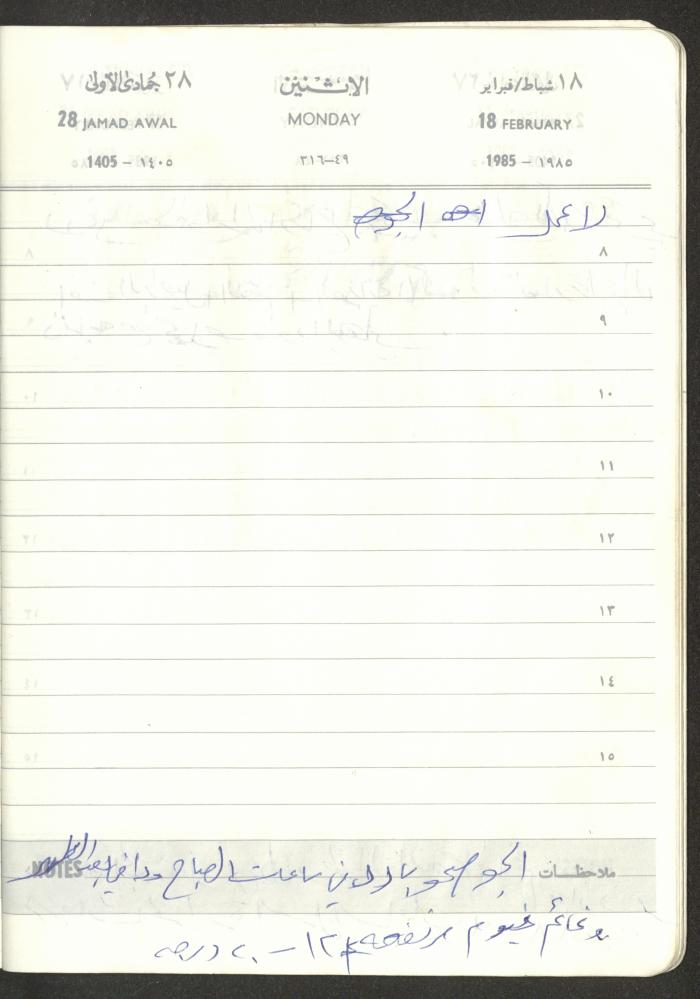 ١٨ شباط/فبراير الإثنين ٢٨ جمادى الأولى
18 FEBRUARY MONDAY 28 JAMAD AWAL
1985 - ١٩٨٥ ٤٩-٣١٦ 1405 - ١٤٠٥
لا عمل الجو
٨
٩
١٠
١١
١٢
١٣
١٤
١٥
ملاحظات الجو صحو بارد في ساعات الصباح ودافئ بعد الظهر NOTES
وغائم بغيوم مرتفعة ١٢ - ٢٠ درجة